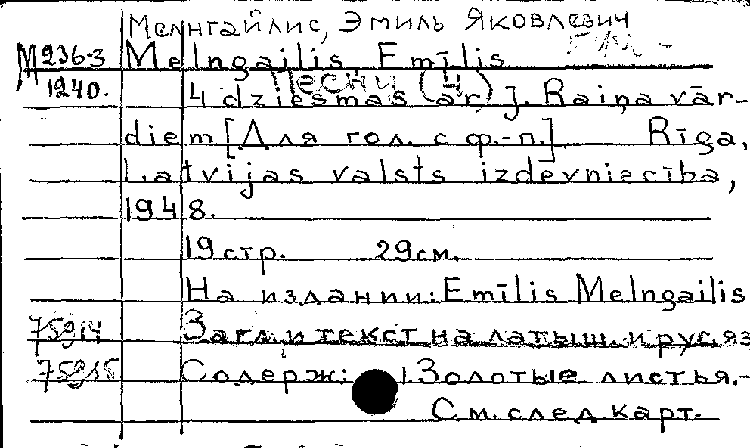 Мелнгайлис, Эмиль Яковлевич
М 236-3 Melngailis, Emīlis
1240. Песни (4)
4 dziesmas ar J. Raiņa vār-
diem [Для гол. с ф.-п.] Rīga,
Latvijas valsts izdevniecība,
1948.
19 стр. 29 см.
На издании: Emīlis Melngailis
75914 Загл. и текст на латыш. и рус. яз
75915 Содерж: 1. Золотые листья.-
См. след. карт.